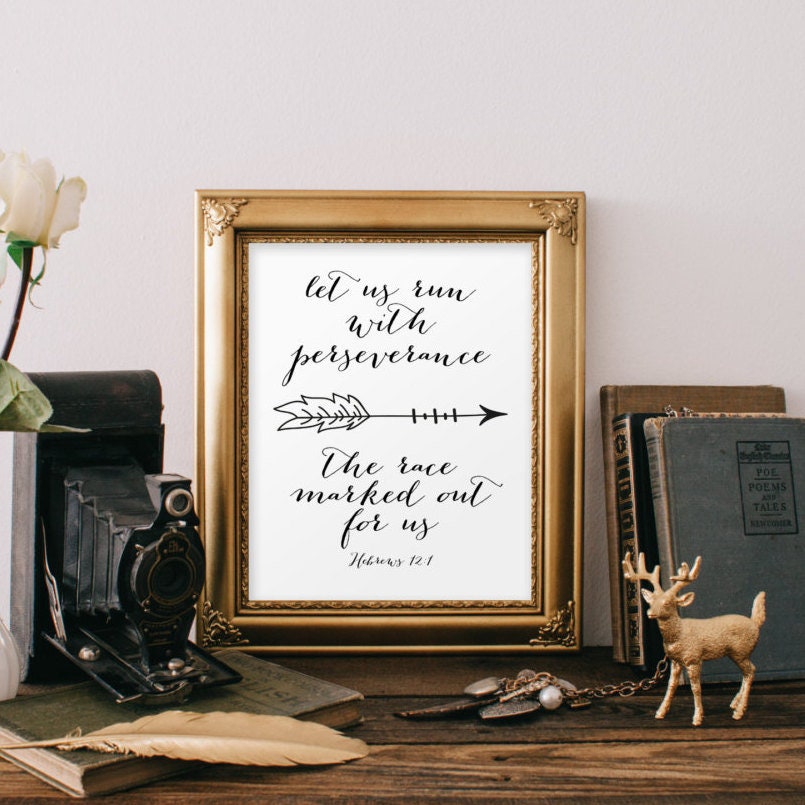 let us run
with
perseverance
The race
marked out
for us
Hebrews 12:1
POE
POEMS
AND
TALES
NEWCOMER